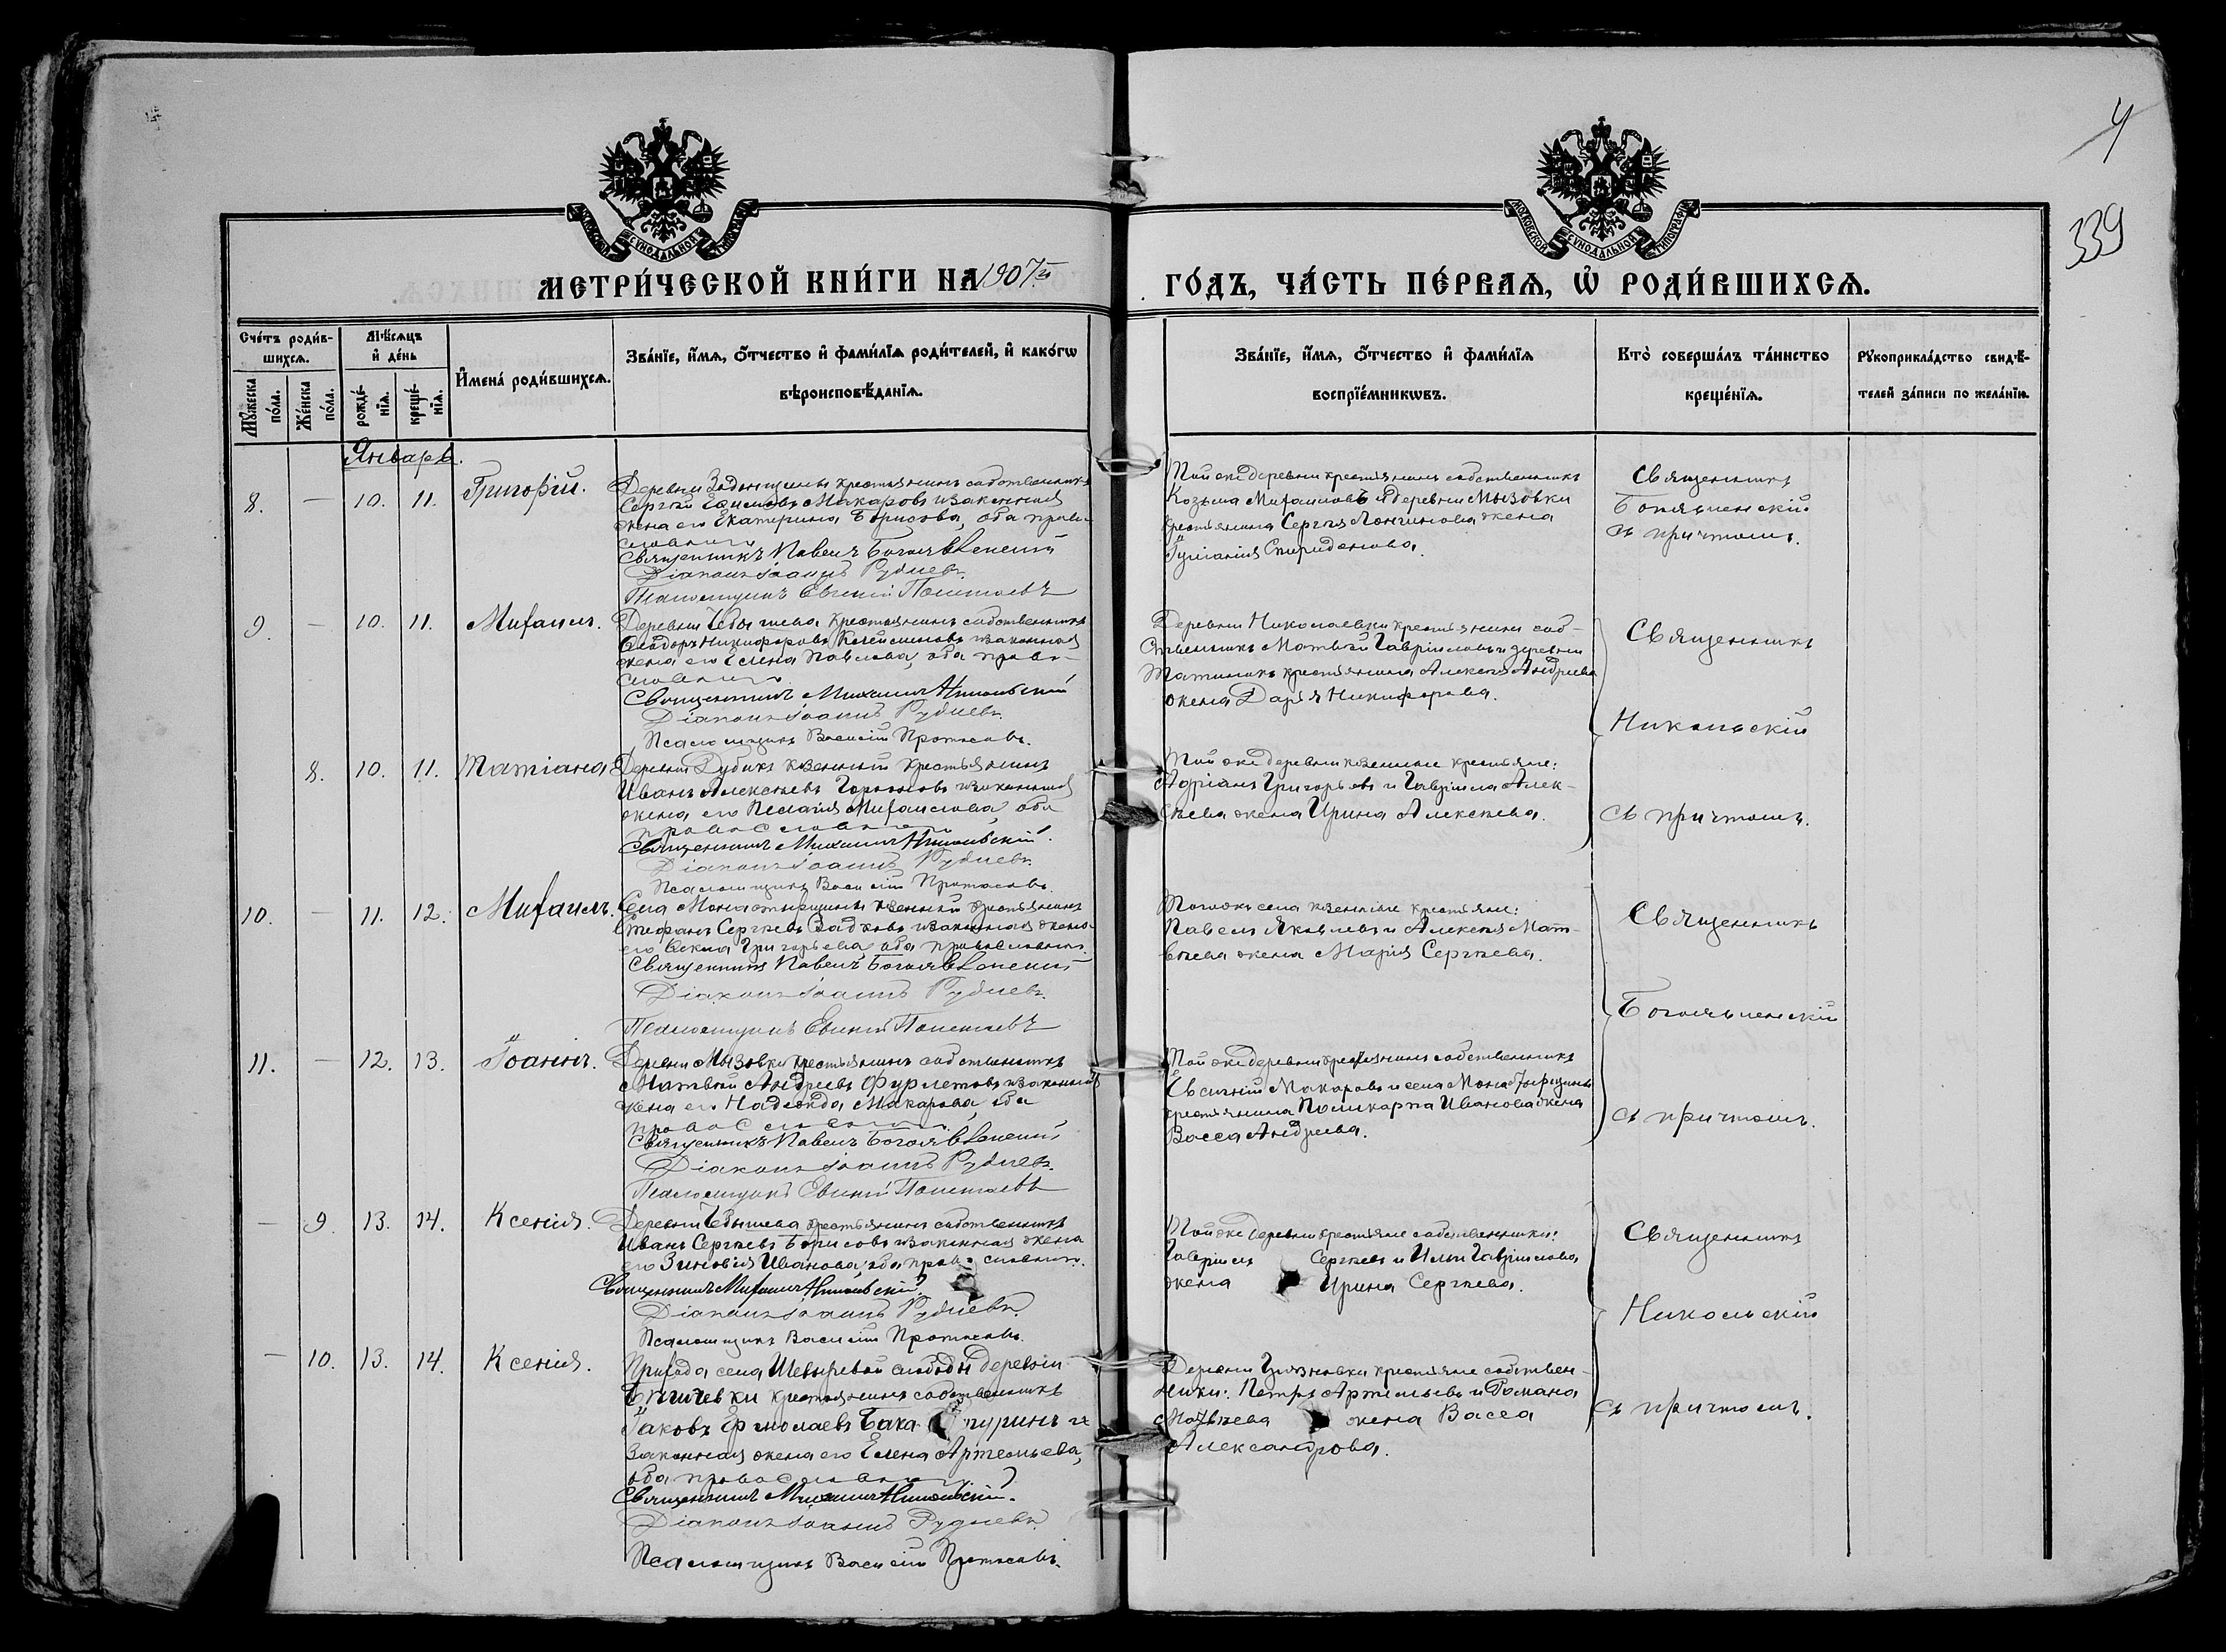 4
339
МОСКОВСКОЙ СѴНОДАЛЬНОЙ ТИПОГРАФІИ
МОСКОВСКОЙ СѴНОДАЛЬНОЙ ТИПОГРАФІИ
МЕТРИ́ЧЕСКОЙ КНИ́ГИ НА 1907й ГО́ДЪ, ЧА́СТЬ ПЕ́РВАѦ, Ѡ҆ РОДИ́ВШИХСѦ.
Сче́тъ роди́в-
шихсѧ.
Мѣ́сѧцъ
и҆ де́нь
Мꙋ́жеска
по́ла.
Же́нска
по́ла.
рожде́-
нїѧ.
креще́-
нїѧ.
И҆мена̀ роди́вшихсѧ.
Зва́нїе, и҆́мѧ, ѻ҆́тчество и҆ фами́лїѧ роди́телей, и҆ како́гѡ
вѣроисповѣ́данїѧ.
Зва́нїе, и҆́мѧ, ѻ҆́тчество и҆ фами́лїѧ
воспрїе́мникѡвъ.
Кто̀ соверша́лъ та́инство
креще́нїѧ.
Рꙋкоприкла́дство свидѣ́-
телей за́писи по жела́нїю.
Январь.
8. — 10. 11. Григорій.
Деревни Задонщины крестьянинъ собственникъ
Сергѣй Ефимовъ Макаровъ и законная
жена его Екатерина Борисова, оба право-
славные
Священникъ Павелъ Богоявленскій
Діаконъ Іоаннъ Рудневъ.
Псаломщикъ Евгеній
Той же деревни крестьянинъ собственникъ
Козьма Михаиловъ и деревни Мызовки
крестьянина Сергѣя Лонгинова жена
Іуліанія Спиридонова.
Священникъ
Богоявленскій
съ причтомъ.
9. — 10. 11. Михаилъ.
Деревни Чебышева крестьянинъ собственникъ
Ѳеодоръ Никифоровъ и законная
жена его Елена Павлова, оба право-
славные.
Священникъ Михаилъ Никольскій
Діаконъ Іоаннъ Рудневъ.
Псаломщикъ Василій Протасовъ.
Деревни Николаевки крестьянинъ соб-
ственникъ Матвѣй Гавріиловъ и деревни
Татинокъ крестьянина Алексѣя Андреева
жена Дарья Никифорова.
Священникъ
Никольскій
съ причтомъ.
8. 10. 11. Татіана
Деревни Дубикъ казенный крестьянинъ
Иванъ Алексѣевъ и законная
жена его Пелагія Михаилова, оба
православные.
Священникъ Михаилъ Никольскій.
Діаконъ Іоаннъ Рудневъ.
Псаломщикъ Василій Протасовъ.
Той же деревни казенные крестьяне:
Адріанъ Григорьевъ и Гавріила Алек-
сѣева жена Ирина Алексѣева.
10. — 11. 12. Михаилъ.
Села Монастырщины казенный крестьянинъ
Стефанъ Сергѣевъ и законная жена
его Ѳекла Григорьева, оба православные.
Священникъ Павелъ Богоявленскій
Діаконъ Іоаннъ Рудневъ.
Псаломщикъ Евгеній
Того же села казенные крестьяне:
Павелъ Яковлевъ и Алексѣя Мат-
вѣева жена Марія Сергѣева.
Священникъ
Богоявленскій
съ причтомъ.
11. — 12. 13. Іоаннъ.
Деревни Мызовки крестьянинъ собственникъ
Матвѣй Андреевъ Фурлетовъ и законная
жена его Надежда Макарова, оба
православные.
Священникъ Павелъ Богоявленскій
Діаконъ Іоаннъ Рудневъ.
Псаломщикъ Евгеній
Той же деревни крестьянинъ собственникъ
Евсигній Макаровъ и села Монастырщины
крестьянина Поликарпа Иванова жена
Васса Андреева.
— 9. 13. 14. Ксенія.
Деревни Чебышева крестьянинъ собственникъ
Иванъ Сергѣевъ Борисовъ и законная жена
его Зиновія Иванова, оба православные.
Священникъ Михаилъ Никольскій.
Діаконъ Іоаннъ Рудневъ.
Псаломщикъ Василій Протасовъ.
Той же деревни крестьяне собственники:
Гавріилъ Сергѣевъ и Ильи Гавріилова
жена Ирина Сергѣева.
Священникъ
Никольскій
съ причтомъ.
— 10. 13. 14. Ксенія.
Прихода села Шевыревой слободы деревни
крестьянинъ собственникъ
Іаковъ Ермолаевъ и
законная жена его Елена Артемьева,
оба православные.
Священникъ Михаилъ Никольскій.
Діаконъ Іоаннъ Рудневъ.
Псаломщикъ Василій Протасовъ.
Деревни Грязновки крестьяне собствен-
ники: Петръ Артемьевъ и Романа
Матвѣева жена Васса
Александрова.